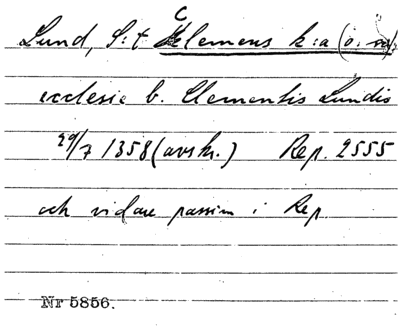 Lund, S:t Clemens k:a (o. sn).
ecclesie b. Clementis Lundis
29/7 1358 (avskr.) Rep. 2555
och vidare passim i Rep
Nr 5856.